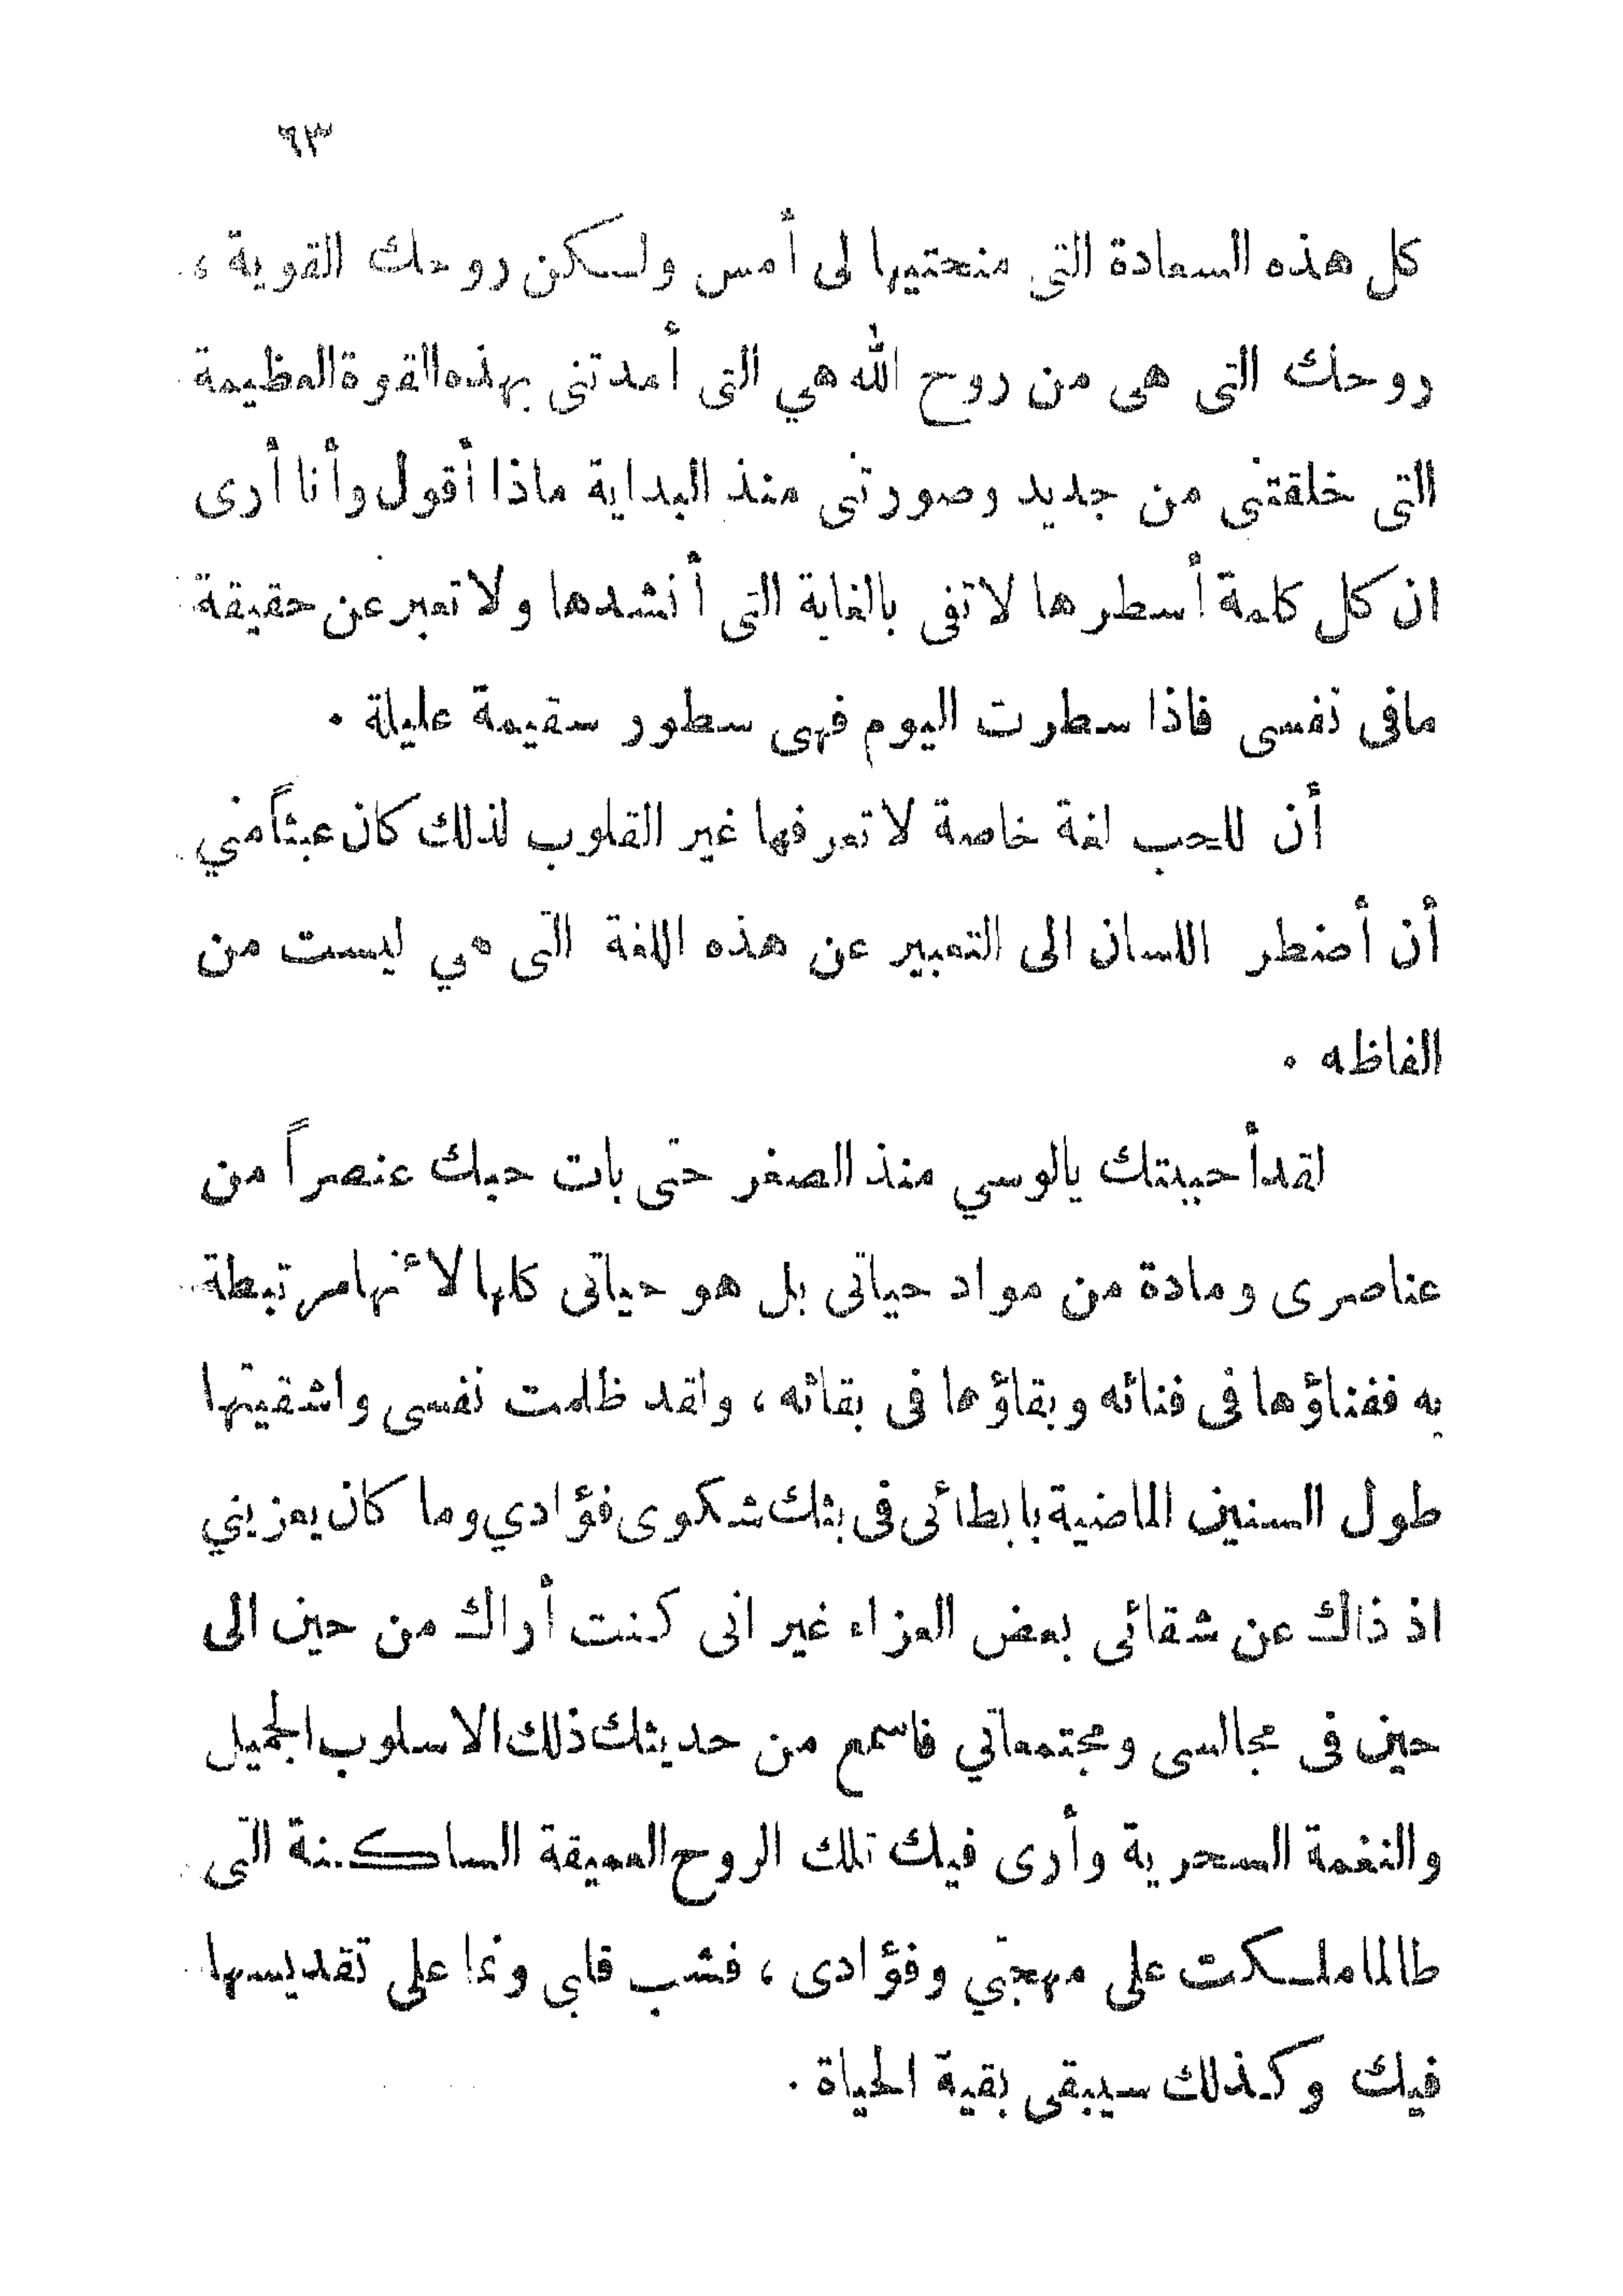 ٦٣
كل هذه السعادة التى منحتيها لى أمس ولكن روحك القوية ،
روحك التى هى من روح الله هي التى أمدتنى بهذه القوة العظيمة
التى خلقتنى من جديد وصورتنى منذ البداية ماذا أقول وأنا أرى
ان كل كلمة أسطرها لا تفى بالغاية التى أنشدها ولا تعبر عن حقيقة
مافى نفسى فاذا سطرت اليوم فهى سطور سقيمة عليلة .
أن للحب لغة خاصة لا تعرفها غير القلوب لذلك كان عبثاً مني
أن أضطر اللسان الى التعبير عن هذه اللغة التى هي ليست من
الفاظه .
لقد أحببتك يالوسي منذ الصغر حتى بات حبك عنصراً من
عناصرى ومادة من مواد حياتى بل هو حياتى كلها لأنها مرتبطة
به ففناؤها فى فنائه وبقاؤها فى بقائه ، ولقد ظلمت نفسى واشقيتها
طول السنين الماضية بابطائى فى بثك شكوى فؤادي وما كان يعزيني
اذ ذاك عن شقائى بعض العزاء غير انى كنت أراك من حين الى
حين فى مجالسى ومجتمعاتي فاسمع من حديثك ذلك الاسلوب الجميل
والنغمة السحرية وأرى فيك تلك الروح العميقة الساكنة التى
طالما ملكت على مهجتي وفؤادى ، فشب قلبي ونما على تقديسها
فيك وكذلك سيبقى بقية الحياة .